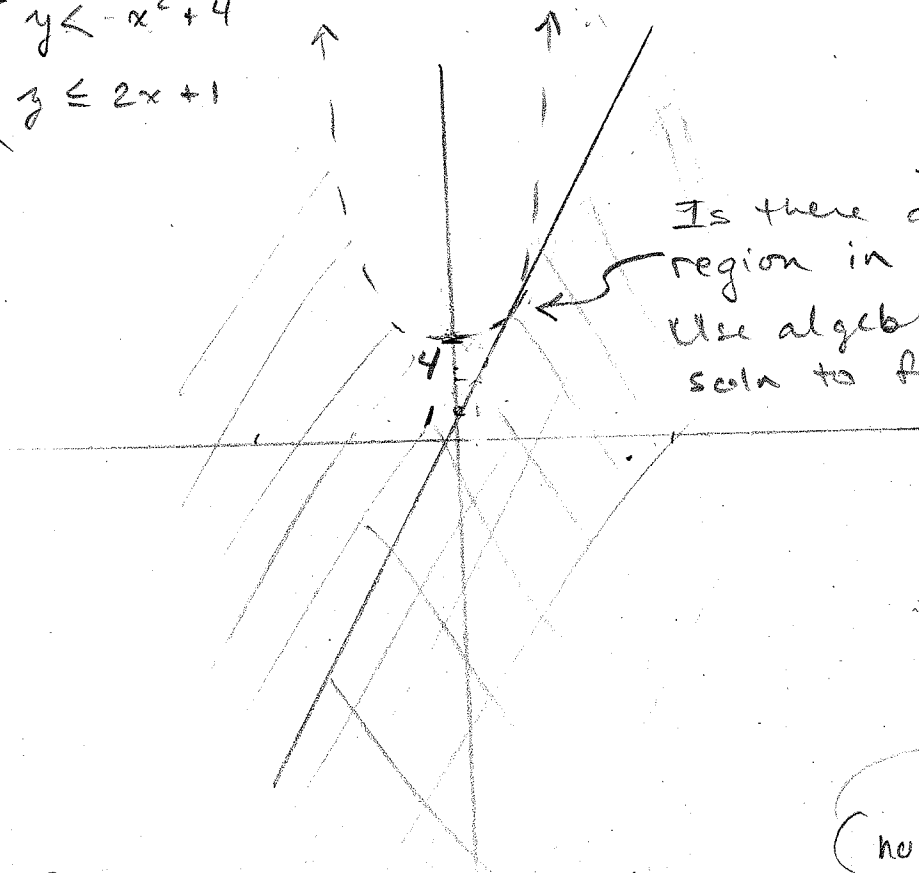 y < -x² + 4
y ≤ 2x + 1
Is there
region in
Use algeb
soln to f
4
1
(no